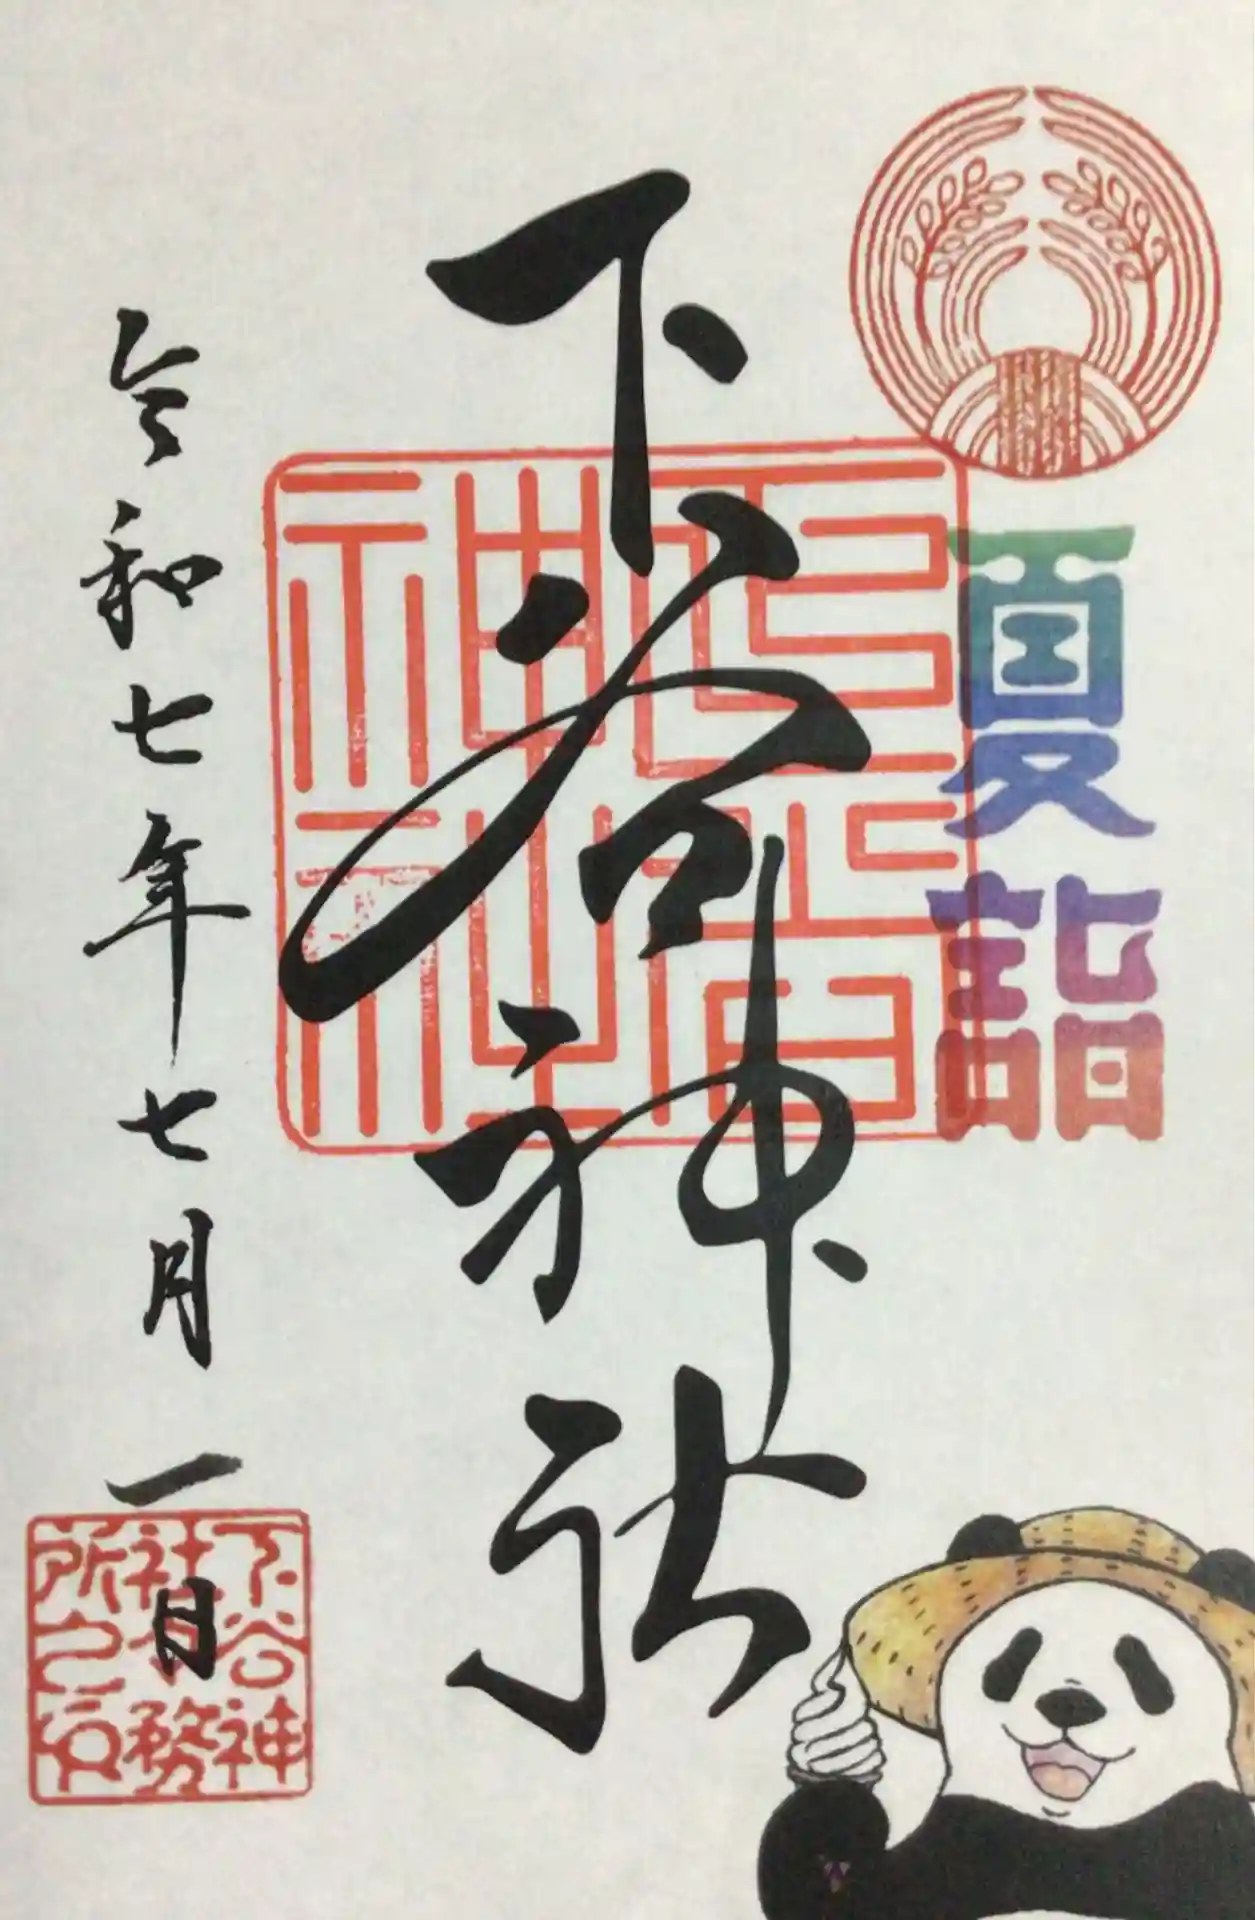 夏詣
下谷神社
令和七年七月一日
下谷神
社 務
所之印